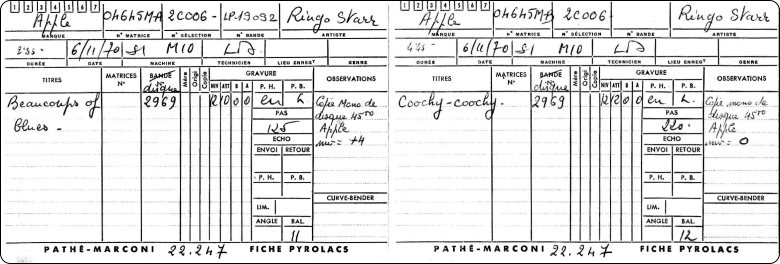 1 2 3 4 5 6 7
Apple 04645MA 2C006- LP.19092 Ringo Starr
MARQUE N° MATRICE N° SÉLECTION N° BANDE ARTISTE
6/11/70 S1 M10
DURÉE DATE MACHINE TECHNICIEN LIEU ENREGT GENRE
TITRES MATRICES N° BANDE N° disque Mère Origl Copie GRAVURE OBSERVATIONS
NIV ATT B A P. H. P. B.
Beaucoups of 2969 12 10 0 0 en L Copie Mono de
blues - PAS disque 45T0
125 Apple
ECHO niv = +4
ENVOI RETOUR
P. H. P. B.
CURVE-BENDER
LIM.
ANGLE BAL.
11
PATHÉ-MARCONI 22.247 FICHE PYROLACS
1 2 3 4 5 6 7
Apple 04645MB 2C006- Ringo Starr
MARQUE N° MATRICE N° SÉLECTION N° BANDE ARTISTE
6/11/70 S1 M10
DURÉE DATE MACHINE TECHNICIEN LIEU ENREGT GENRE
TITRES MATRICES N° BANDE N° disque Mère Origl Copie GRAVURE OBSERVATIONS
NIV ATT B A P. H. P. B.
Coochy-coochy. 2969 12 12 0 0 en L. Copie mono de
PAS disque 45T0
220. Apple
ECHO niv = 0
ENVOI RETOUR
P. H. P. B.
CURVE-BENDER
LIM.
ANGLE BAL.
12
PATHÉ-MARCONI 22.247 FICHE PYROLACS